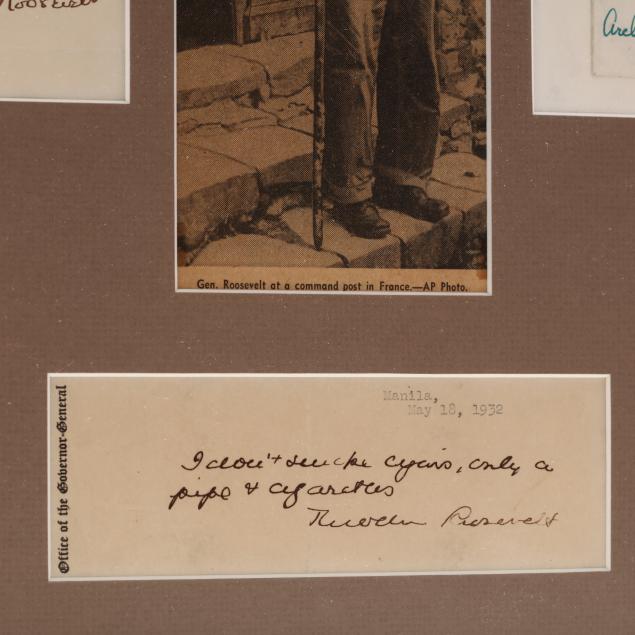 Roosevelt
Gen. Roosevelt at a command post in France.—AP Photo.
Office of the Governor-General
Manila,
May 18, 1932
I don't smoke cigars, only a
pipe & cigarettes
Theodore Roosevelt